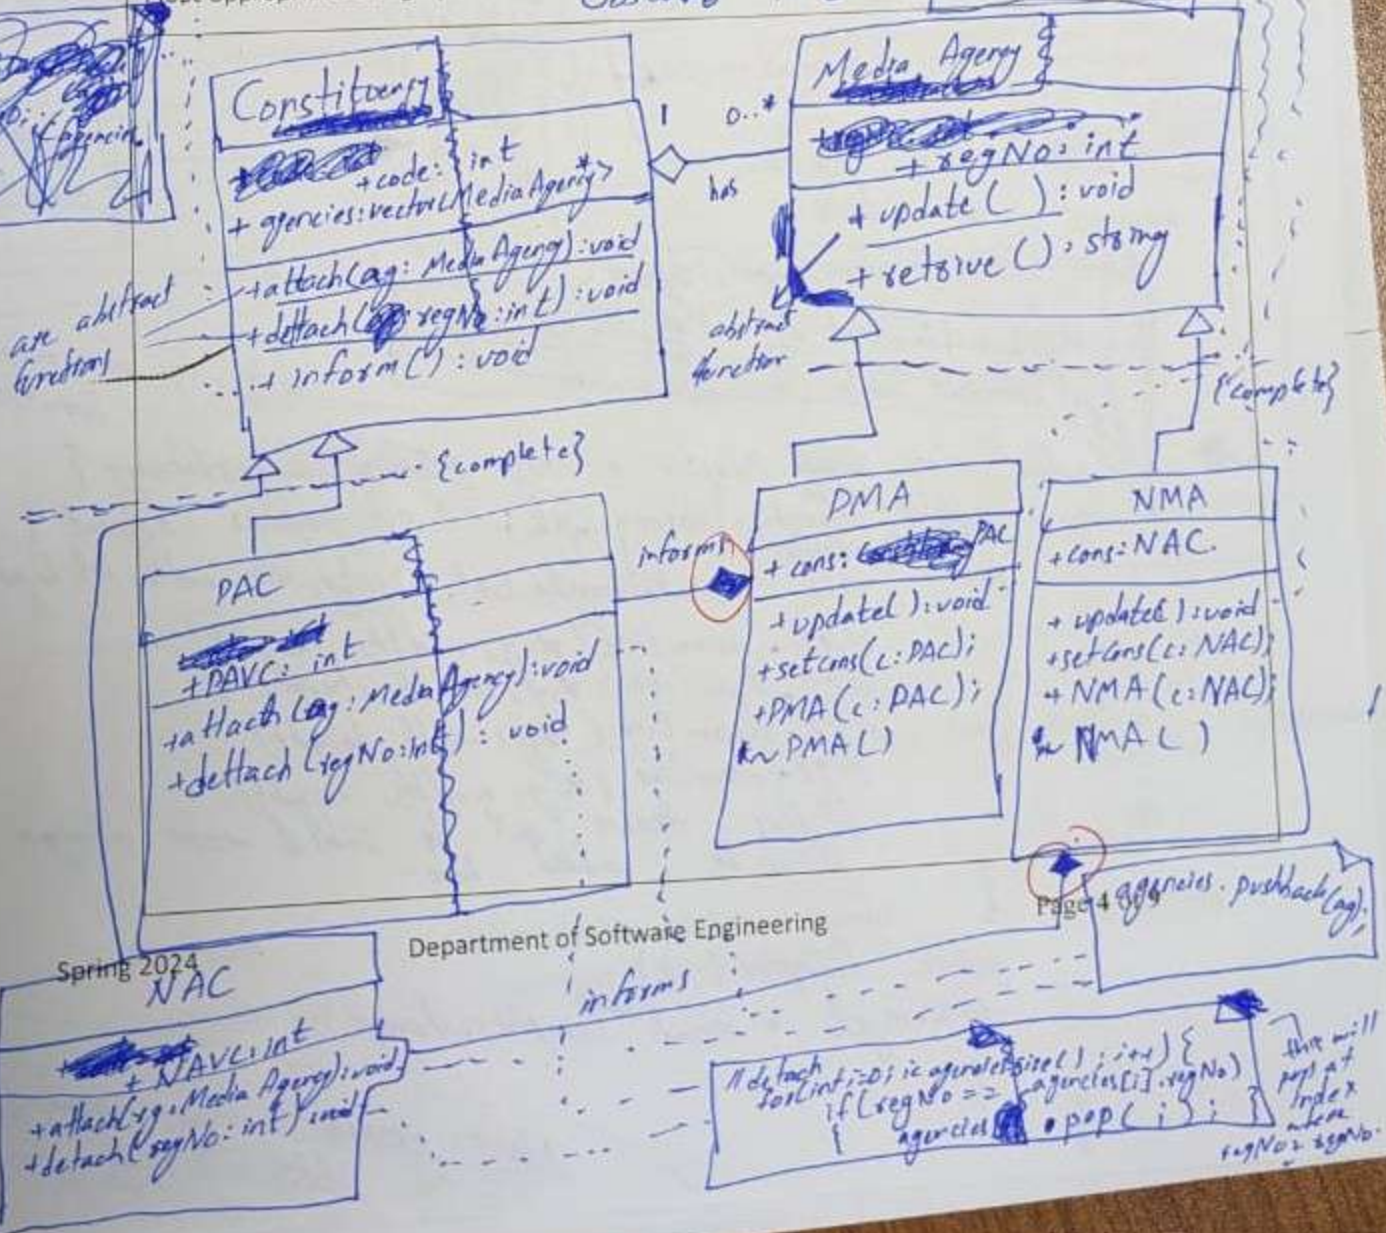 Constituency
+code: int
+ agencies:vector<Media Agency*>
+attach(ag: Media Agency):void
+dettach( regNo:int):void
+ inform():void
are abstract
functions
1
0..*
has
Media Agency
+ regNo: int
+ update( ): void
+ retrive(): string
abstract
function
{complete}
{complete}
PAC
+PAVC: int
+attach(ag: Media Agency):void
+dettach(regNo:int): void
informs
DMA
+ cons: PAC
+update():void
+setcons(c:PAC);
+PMA(c:PAC);
~ PMA()
NMA
+cons: NAC.
+ update():void
+setcons(c: NAC);
+ NMA(c:NAC);
~ NMA( )
Page 4 of 9
agencies.pushback(ag);
Department of Software Engineering
Spring 2024
NAC
+ NAVC:int
+attach(rg: Media Agency):void
+detach(regNo:int):void
informs
// detach
for(int i=0; i< agencies size(); i++) {
if(regNo == agencies[i].regNo)
{ agencies .pop(i); }
this will
pop at
index
where
regNo= regNo.